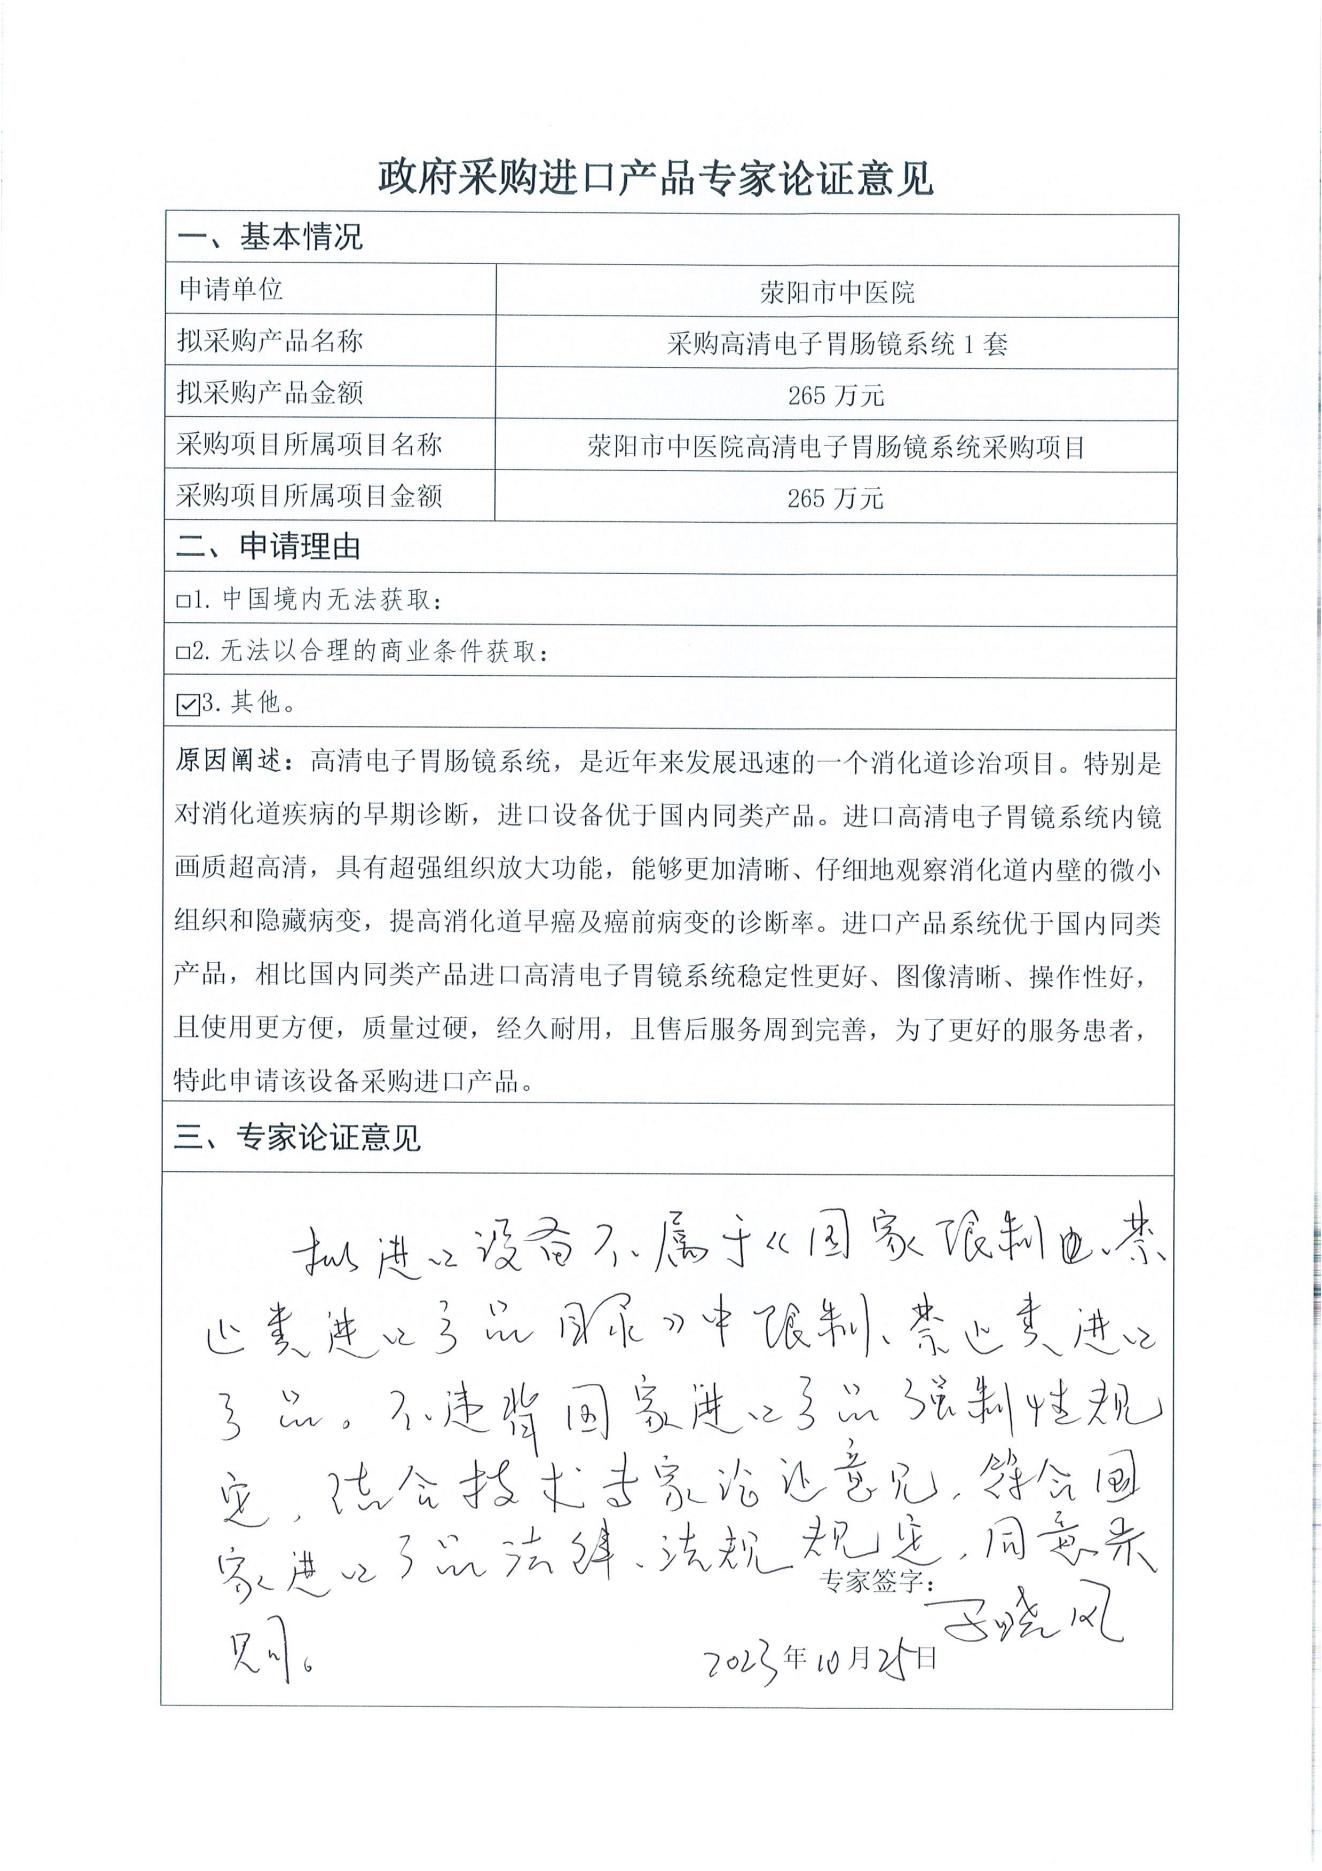 政府采购进口产品专家论证意见
一、基本情况
申请单位 荥阳市中医院
拟采购产品名称 采购高清电子胃肠镜系统1套
拟采购产品金额 265万元
采购项目所属项目名称 荥阳市中医院高清电子胃肠镜系统采购项目
采购项目所属项目金额 265万元
二、申请理由
□1.中国境内无法获取：
□2.无法以合理的商业条件获取：
☑3.其他。
原因阐述：高清电子胃肠镜系统，是近年来发展迅速的一个消化道诊治项目。特别是
对消化道疾病的早期诊断，进口设备优于国内同类产品。进口高清电子胃镜系统内镜
画质超高清，具有超强组织放大功能，能够更加清晰、仔细地观察消化道内壁的微小
组织和隐藏病变，提高消化道早癌及癌前病变的诊断率。进口产品系统优于国内同类
产品，相比国内同类产品进口高清电子胃镜系统稳定性更好、图像清晰、操作性好，
且使用更方便，质量过硬，经久耐用，且售后服务周到完善，为了更好的服务患者，
特此申请该设备采购进口产品。
三、专家论证意见
拟进口设备不属于《国家限制、禁
止类进口产品目录》中限制、禁止类进口
产品。不违背国家进口产品强制性规
定，结合技术专家论证意见，符合国
家进口产品法律、法规规定，同意采
购。
专家签字：
2023年10月25日